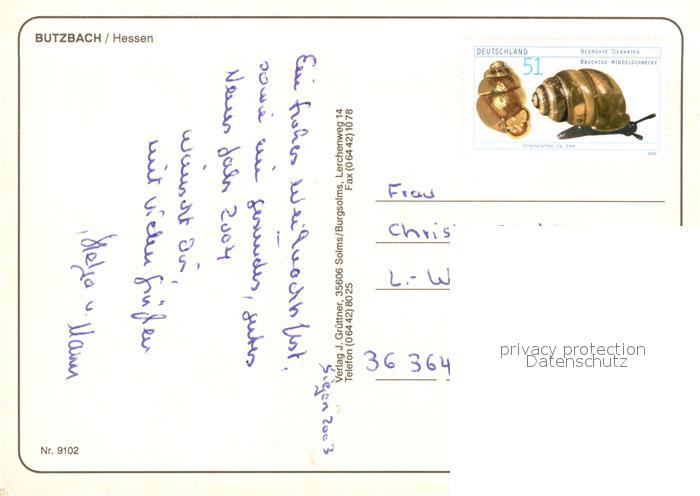 BUTZBACH / Hessen
DEUTSCHLAND
51
BEDROHTE TIERARTEN
BAUCHIGE WINDELSCHNECKE
Originalgröße: ca. 3mm
2002
Ein frohes Weihnachtsfest,
sowie ein gesundes, gutes
Neues Jahr 2004
wünscht Dir,
mit vielen Grüßen
Helga u. Mann
Siegen 2003
Verlag J. Grüttner, 35606 Solms/Burgsolms, Lerchenweg 14
Telefon (06442) 8025 Fax (06442) 1078
Frau
Chris
L.-W
36 364
privacy protection
Datenschutz
Nr. 9102